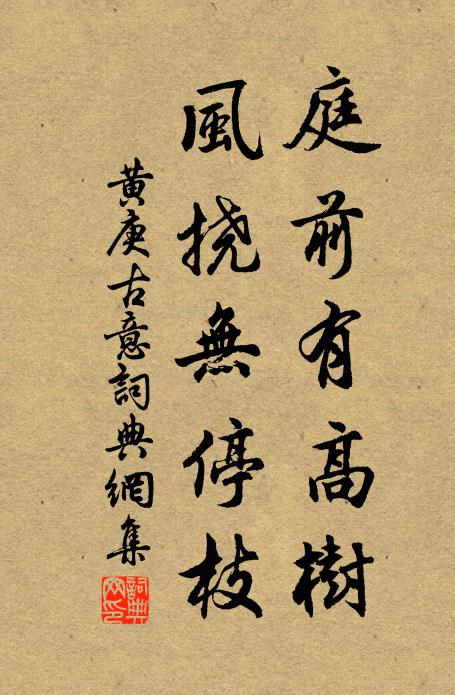 庭前有高樹
風挠無停枝
黄庚古意詞典網集
詞典
网印